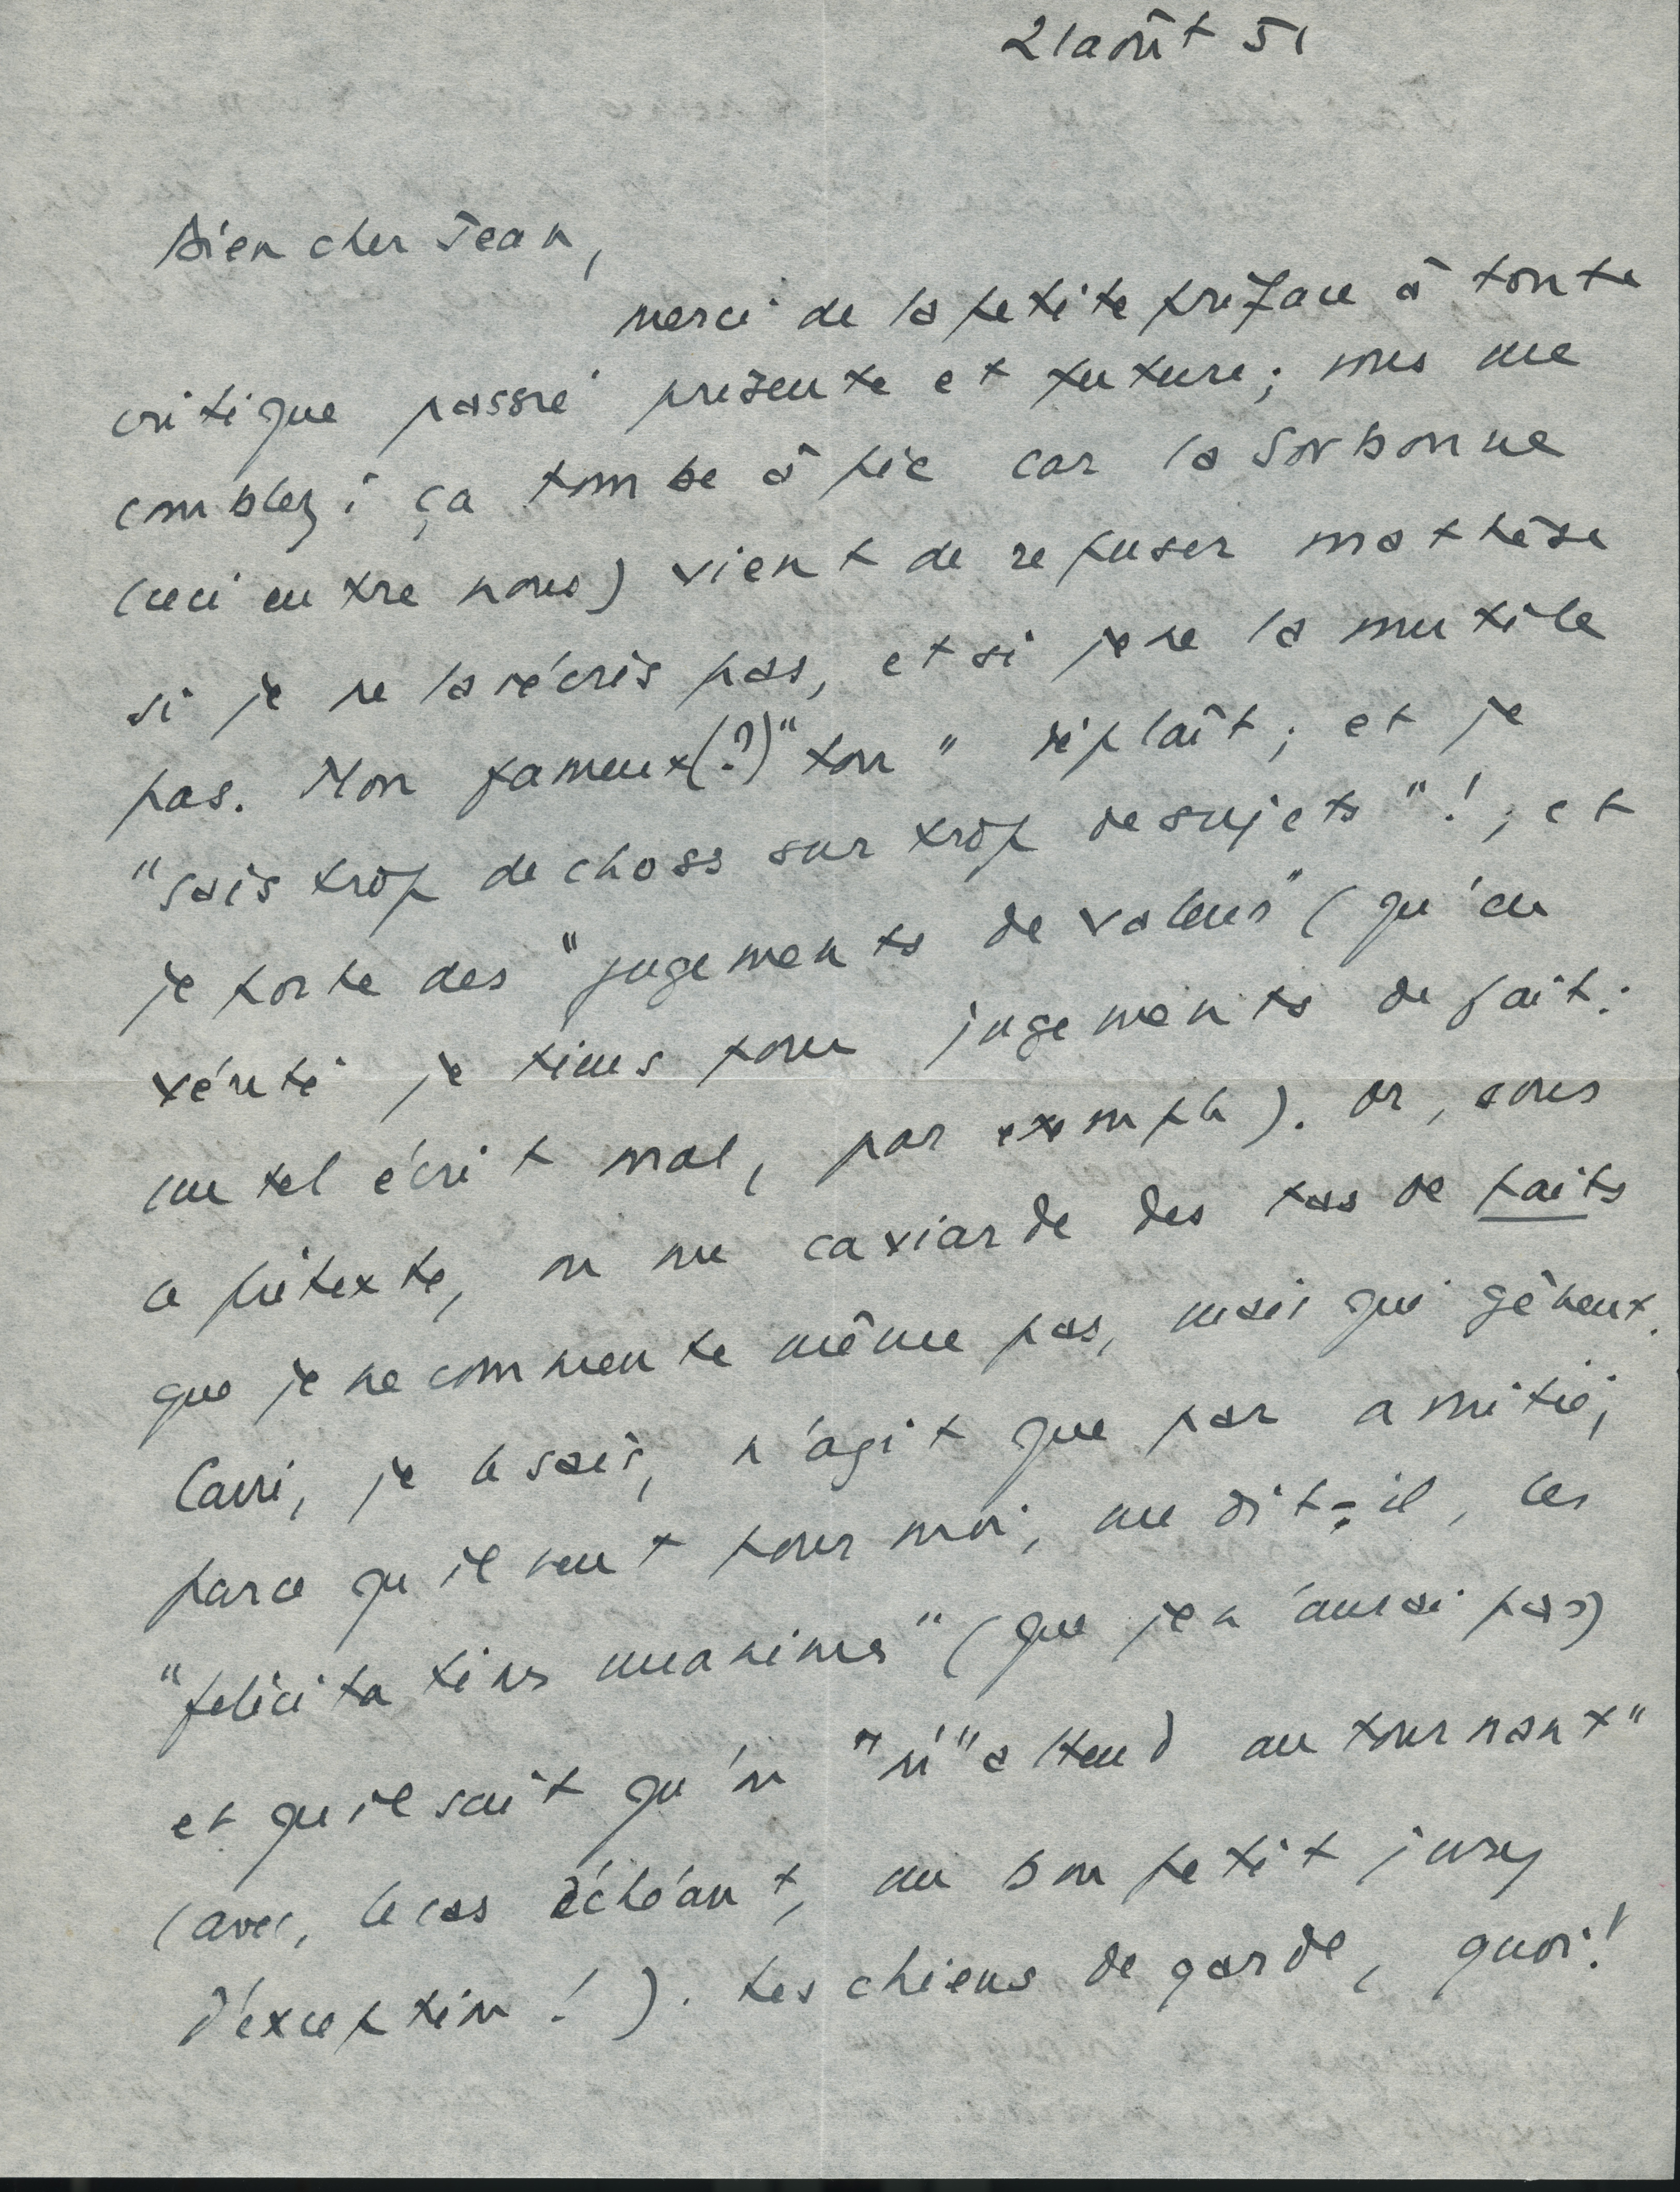 21 août 51
Bien cher Jean,
merci de la petite préface à toute
critique passée présente et future ; vous me
comblez ; ça tombe à pic car la Sorbonne
(ceci entre nous) vient de refuser ma thèse
si je ne la récris pas, et si je ne la mutile
pas. Mon fameux (?) "ton" déplaît ; et je
"sais trop de choses sur trop de sujets" ! ; et
je porte des "jugements de valeur" (qu'en
vérité je tiens pour jugements de fait :
un tel écrit mal, par exemple). Or, sous
ce prétexte, on me caviarde des tas de faits
que je ne commente même pas, mais qui gênent.
Carré, je le sais, n'agit que par amitié ;
parce qu'il veut pour moi, me dit-il, les
"félicitations unanimes" (que je n'aurai pas)
et qu'il sait qu'on "m'"attend au tournant"
(avec, le cas échéant, un bon petit jury
d'exception !). Les chiens de garde, quoi !